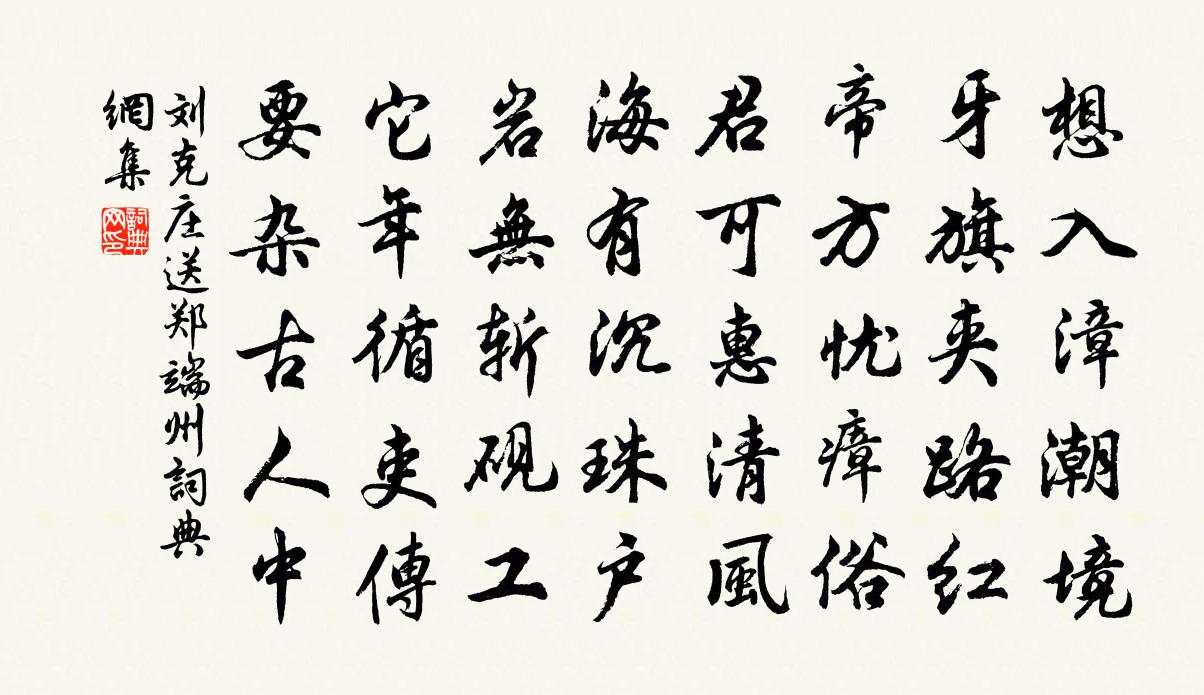 想入漳潮境
牙旗夹路红
帝方忧瘴俗
君可惠清風
海有沉珠户
岩無斩砚工
它年循吏傳
要杂古人中
刘克庄送郑端州詞典
網集
詞典
网印